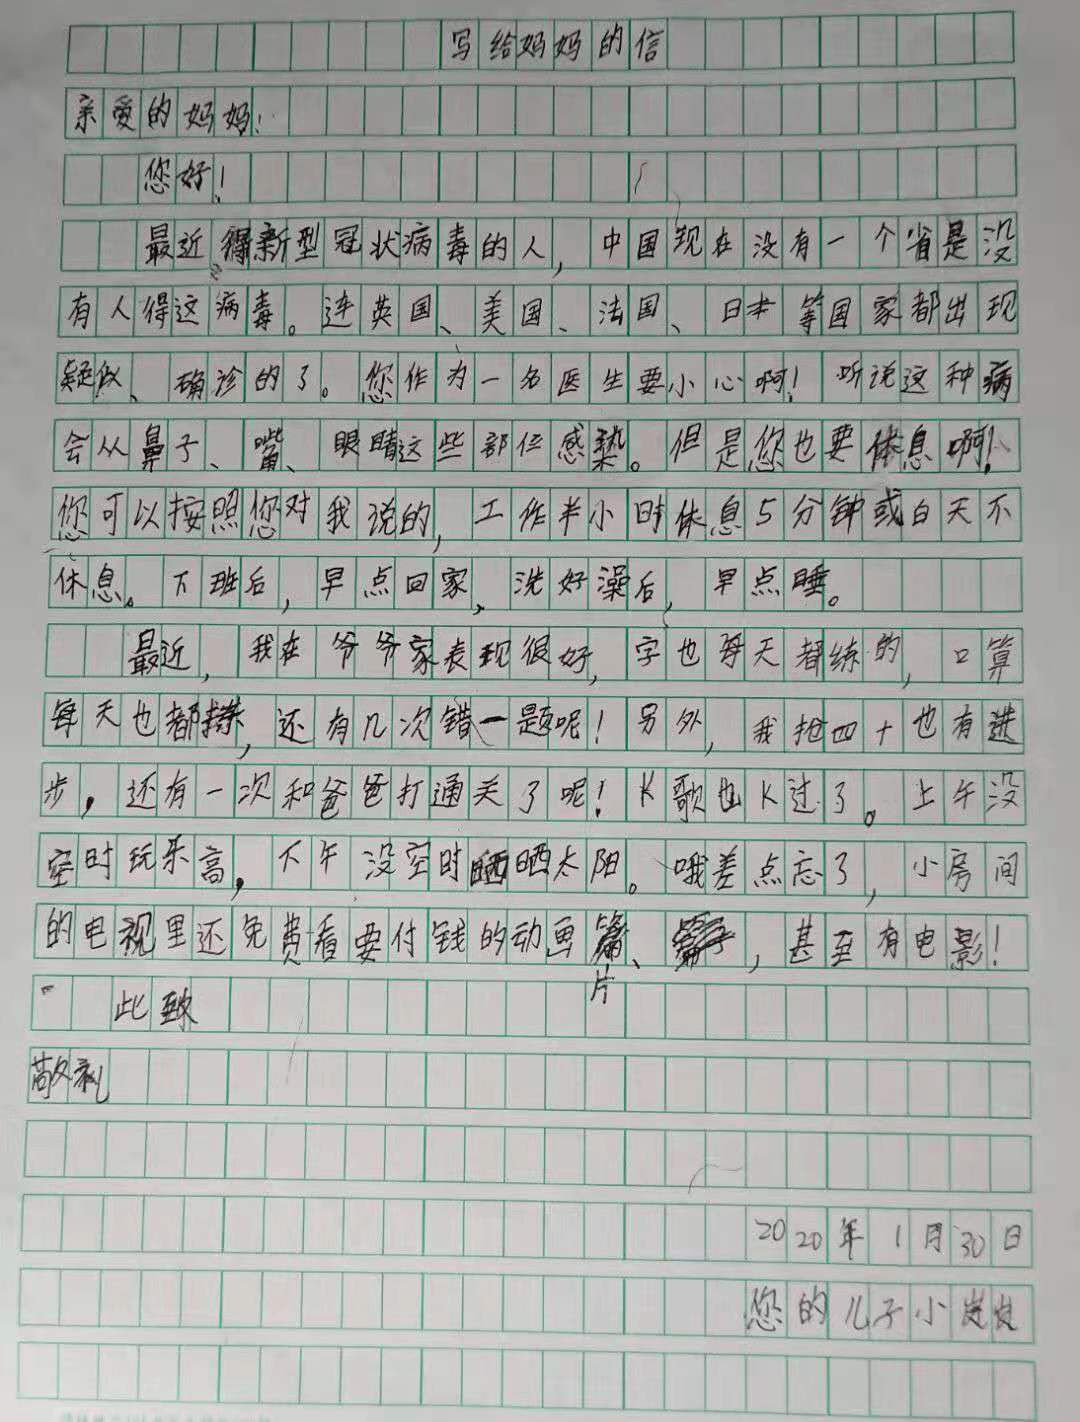 写给妈妈的信
亲爱的妈妈:
您好!
最近得新型冠状病毒的人,中国现在没有一个省是没
有人得这病毒。连英国、美国、法国、日本等国家都出现
疑似、确诊的了。您作为一名医生要小心啊!听说这种病
会从鼻子、嘴、眼睛这些部位感染。但是您也要休息啊!
您可以按照您对我说的,工作半小时休息5分钟或白天不
休息。下班后,早点回家,洗好澡后,早点睡。
最近,我在爷爷家表现很好,字也每天都练的,口算
每天也都挮,还有几次错一题呢!另外,我抢四十也有进
步,还有一次和爸爸打通关了呢!K歌也K过了。上午没
空时玩乐高,下午没空时晒晒太阳。哦差点忘了,小房间
的电视里还免费看要付钱的动画片、,甚至有电影!
此致
敬礼
2020年1月30日
您的儿子小